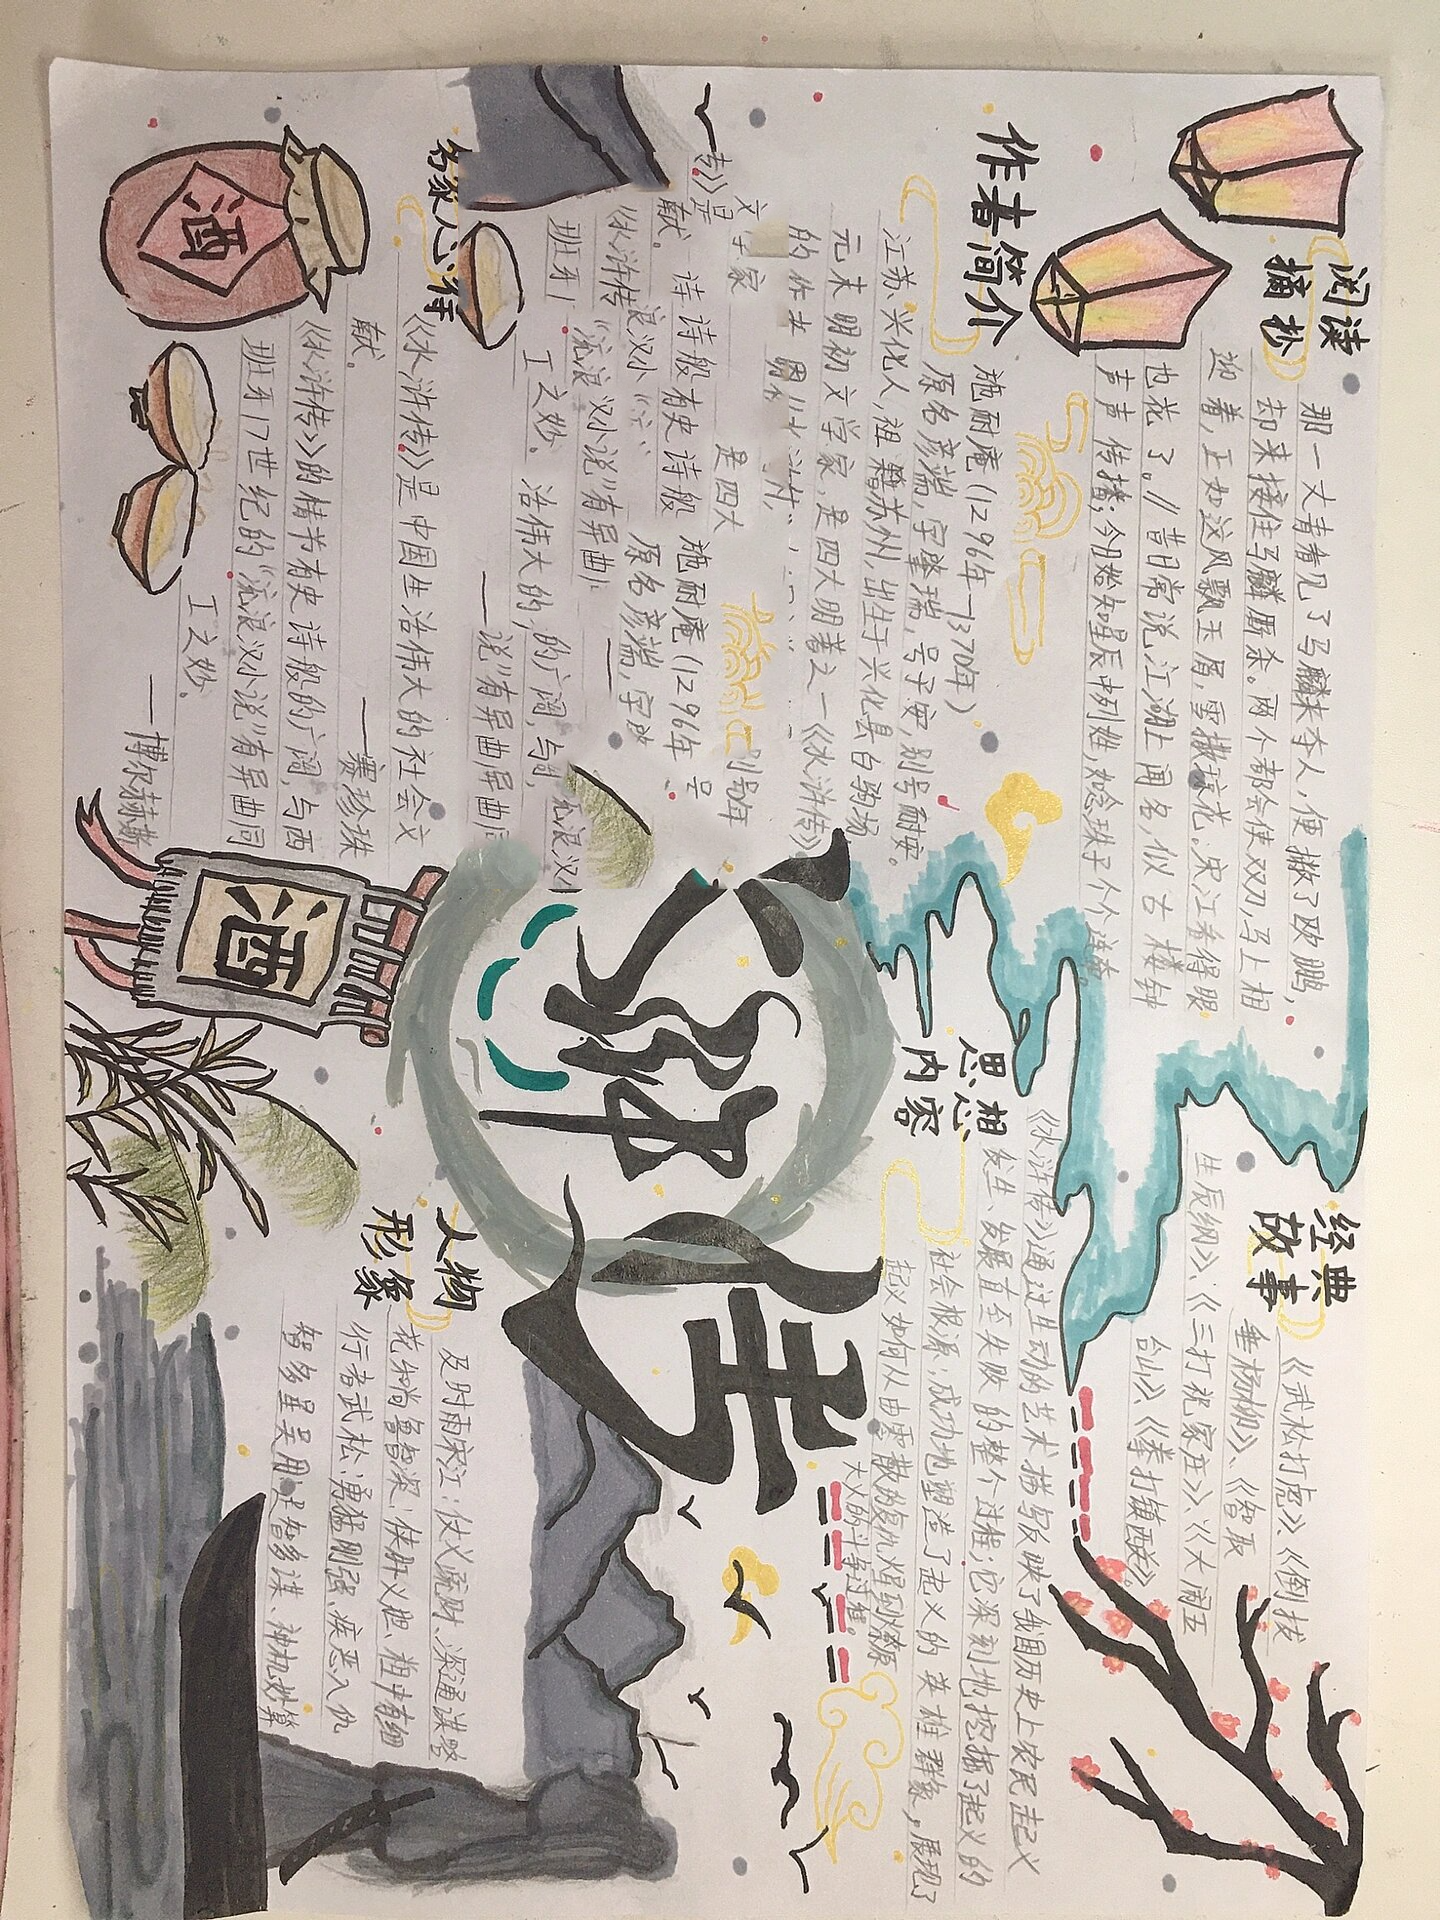 阅读
摘抄
那一丈青看见了马麟来夺人，便撇了欧鹏，
却来接住马麟厮杀。两个都会使双刀，马上相
迎着，正如这风飘玉屑，雪撒琼花。宋江看得眼
也花了。// 昔日常说江湖上闻名，似古楼钟
声声传播；今日始知星辰中列姓，如念珠子个个连牵。
作者简介
施耐庵（1296年—1370年）
原名彦端，字肇瑞，号子安，别号耐庵。
江苏兴化人，祖籍苏州，出生于兴化县白驹场
元末明初文学家，是四大明著之一《水浒传》
的作
文学家
是四大
施耐庵（1296年
原名彦端，字
别号
传》是
献。
诗诗般有史诗般
《水浒传
浪汉小
《流浪汉小说"有异曲
班牙1
工之妙。
浩伟大的，的广阔，与
说"有异曲
名家心得
《水浒传》是中国生活伟大的社会文
献。
——赛珍珠
《水浒传》的情节有史诗般的广阔，与西
班牙17世纪的"流浪汉小说"有异曲同
工之妙。
——博尔赫斯
酒
酒
水浒传
经典
故事
《武松打虎》、《倒拔
垂杨柳》、《智取
生辰纲》、《三打祝家庄》、《大闹五
台山》、《拳打镇西》。
思想
内容
《水浒传》通过生动的艺术描写反映了我国历史上农民起义
发生、发展直至失败的整个过程；它深刻地挖掘了起义的
社会根源；成功地塑造了起义的英雄群象，展现了
起义如何从由零散的复仇火星到燎原
大火的斗争过程。
人物
形象
及时雨宋江：仗义疏财、深通谋略
花和尚鲁智深：侠肝义胆、粗中有细
行者武松：勇猛刚强、疾恶入仇
智多星吴用：足智多谋、神机妙算